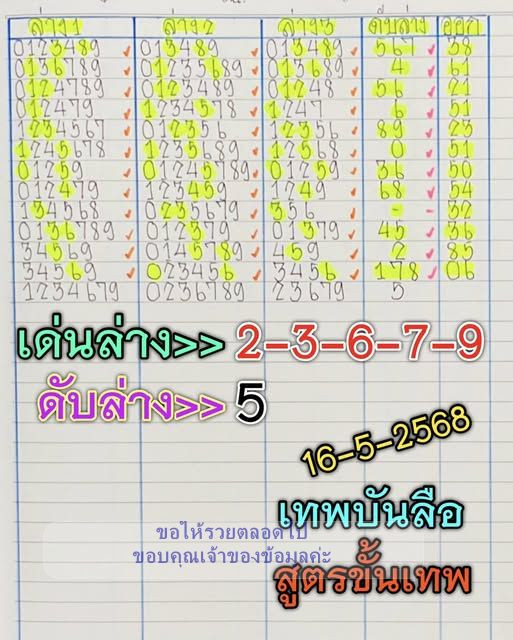 ล่าง1 ล่าง2 ล่าง3 ดับล่าง ออก
013489 ✓ 013489 ✓ 013489 ✓ 567 ✓ 38
0136789 ✓ 01235689 ✓ 013689 ✓ 4 ✓ 61
0124789 ✓ 0123489 ✓ 01248 ✓ 56 ✓ 21
012479 ✓ 1234578 ✓ 1247 ✓ 6 ✓ 51
1234567 ✓ 012356 ✓ 12356 ✓ 89 ✓ 23
1245678 ✓ 1235689 ✓ 12568 ✓ 0 ✓ 51
01259 ✓ 01245789 ✓ 01259 ✓ 36 ✓ 50
012479 ✓ 123459 ✓ 1249 ✓ 68 ✓ 54
134568 ✓ 0235679 ✓ 356 ✓ - - 32
0136789 ✓ 012379 ✓ 01379 ✓ 45 ✓ 36
34569 ✓ 0145789 ✓ 459 ✓ 2 ✓ 85
34569 ✓ 023456 ✓ 3456 ✓ 178 ✓ 06
1234679 0236789 23679 5
เด่นล่าง>> 2-3-6-7-9
ดับล่าง>> 5
16-5-2568
เทพบันลือ
ขอให้รวยตลอดไป
ขอบคุณเจ้าของข้อมูลค่ะ
สูตรขั้นเทพ